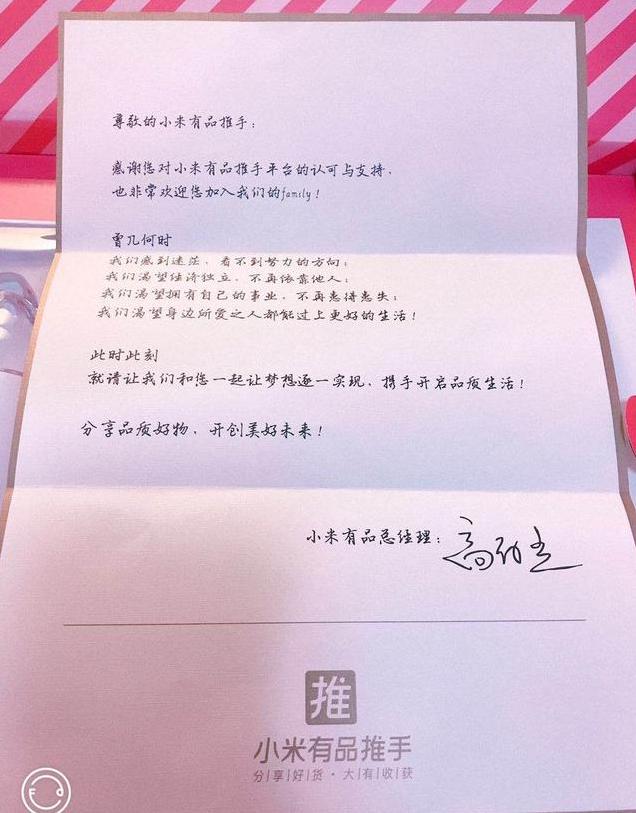 尊敬的小米有品推手：
感谢您对小米有品推手平台的认可与支持，
也非常欢迎您加入我们的family！
曾几何时
我们感到迷茫，看不到努力的方向；
我们渴望经济独立，不再依靠他人；
我们渴望拥有自己的事业，不再患得患失；
我们渴望身边所爱之人都能过上更好的生活！
此时此刻
就请让我们和您一起让梦想逐一实现，携手开启品质生活！
分享品质好物，开创美好未来！
小米有品总经理：
推
小米有品推手
分|享|好|货·大|有|收|获